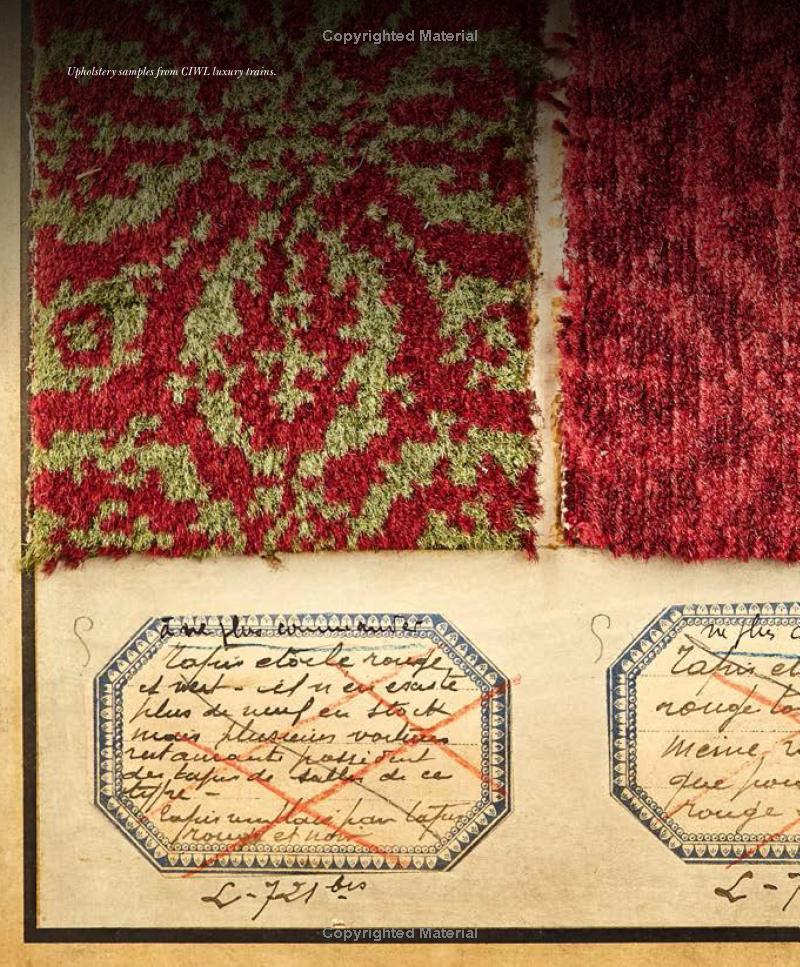 Copyrighted Material
Upholstery samples from CIWL luxury trains.
à ne plus commander
Tapis étoile rouge
et vert - il n'en existe
plus de neuf en stock
mais plusieurs voitures
restaurants possèdent
des tapis de salles de ce
type -
Tapis remplacé par tapis
rouge et noir
L-721 bis
ne plus
Tapis
rouge
meme
que pou
rouge
L-7
Copyrighted Material